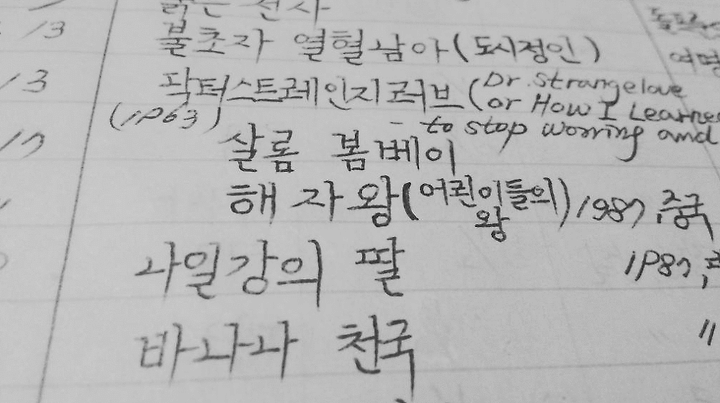 젊은 전사
13 불초자 열혈남아(도시정인)
여명
13 닥터스트레인지러브(Dr. Strangelove
or How I Learne
(1963) - to stop worring and
17 살롬 봄베이
해자왕(어린이들의 왕) 1987, 중국
나일강의 딸 1987,
바나나 천국 〃